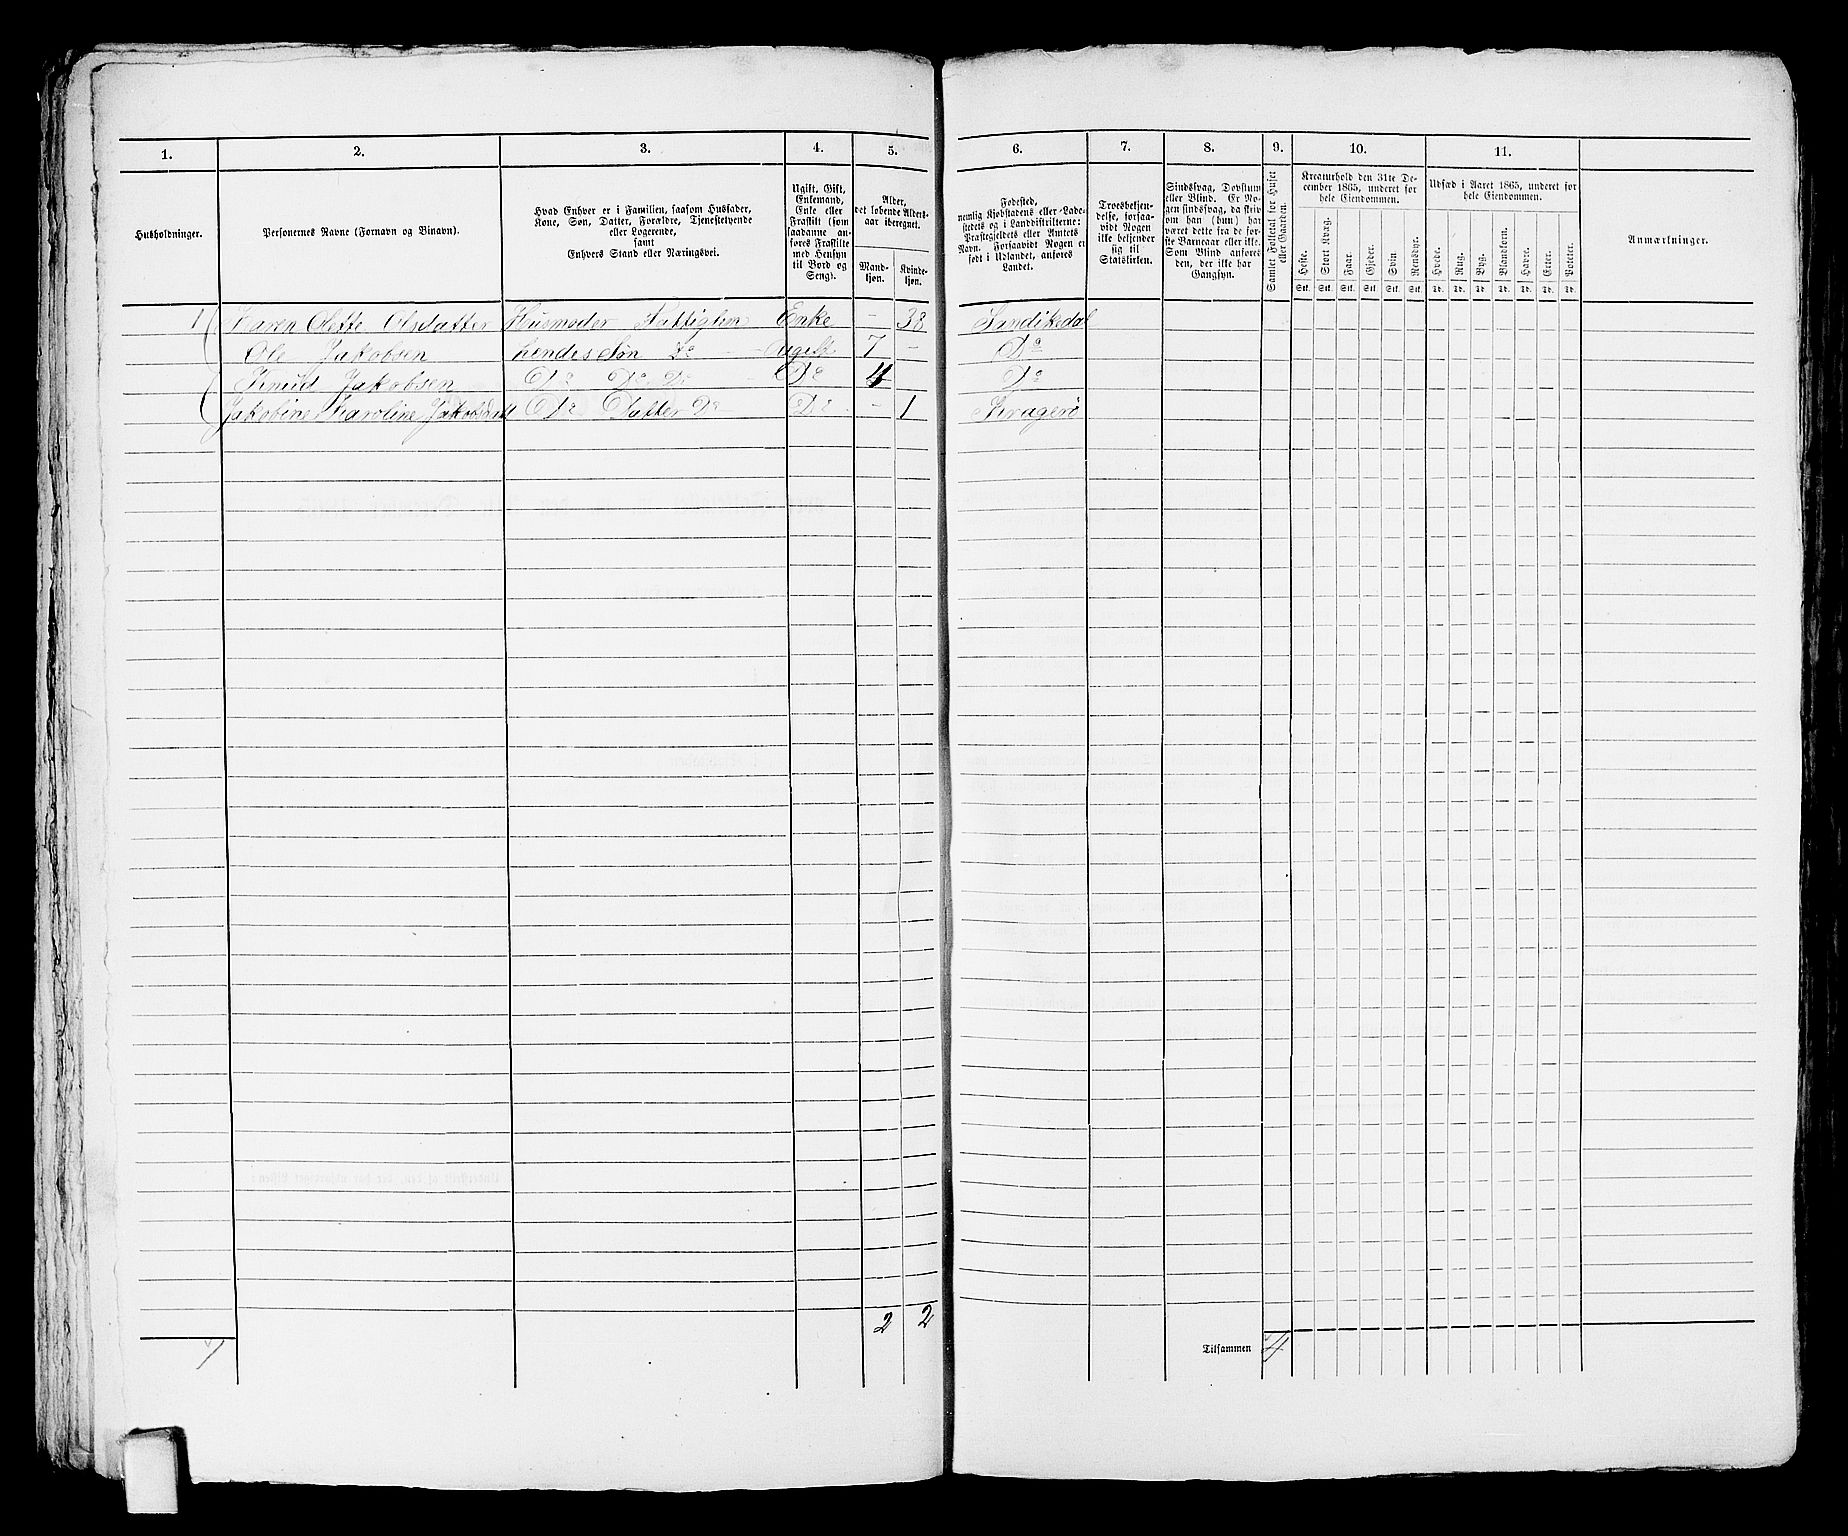 1. 2. 3. 4. 5. 6. 7. 8. 9. 10. 11.
Husholdninger.
Personernes Navne (Fornavn og Binavn).
Hvad Enhver er i Familien, saasom Husfader,
Kone, Søn, Datter, Forældre, Tjenestetyende
eller Logerende,
samt
Enhvers Stand eller Næringsvei.
Ugift, Gift,
Enkemand,
Enke eller
Fraskilt (som
saadanne an-
føres Fraskilte
med Hensyn
til Bord og
Seng).
Alder,
det løbende Alders-
aar iberegnet.
Mand-
kjøn.
Kvinde-
kjøn.
Fødested,
nemlig Kjøbstadens eller Lade-
stedets og i Landdistrikterne:
Præstegjeldets eller Amtets
Navn. Forsaavidt Nogen er
født i Udlandet, anføres
Landet.
Troesbekjen-
delse, forsaa-
vidt Nogen
ikke bekjender
sig til
Statskirken.
Sindssvag, Døvstum
eller Blind. Er No-
gen sindssvag, da skriv
om han (hun) har
været dette fra de før-
ste Barneaar eller ikke.
Som Blind anføres
den, der ikke har
Gangsyn.
Samlet Folketal for Huset
eller Gaarden.
Kreaturhold den 31te De-
cember 1865, underet for
hele Eiendommen.
Heste. Stort Kvæg. Faar. Gjeder. Svin. Rensdyr.
Stk. Stk. Stk. Stk. Stk. Stk.
Udsæd i Aaret 1865, underet for
hele Eiendommen.
Hvede. Rug. Byg. Blandkorn. Havre. Erter. Poteter.
Td. Td. Td. Td. Td. Td. Td.
Anmærkninger.
1 Karen Olette Olsdatter Husmoder Fattiglem Enke - 38 Sandikedal
Ole Jakobsen hendes Søn Do Ugift 7 - Do
Knud Jakobsen Do Do Do Do 4 Do
Jakobine Karoline Jakobsdatt Do Datter Do Do - 1 Kragerö
2 2
1 Tilsammen 4